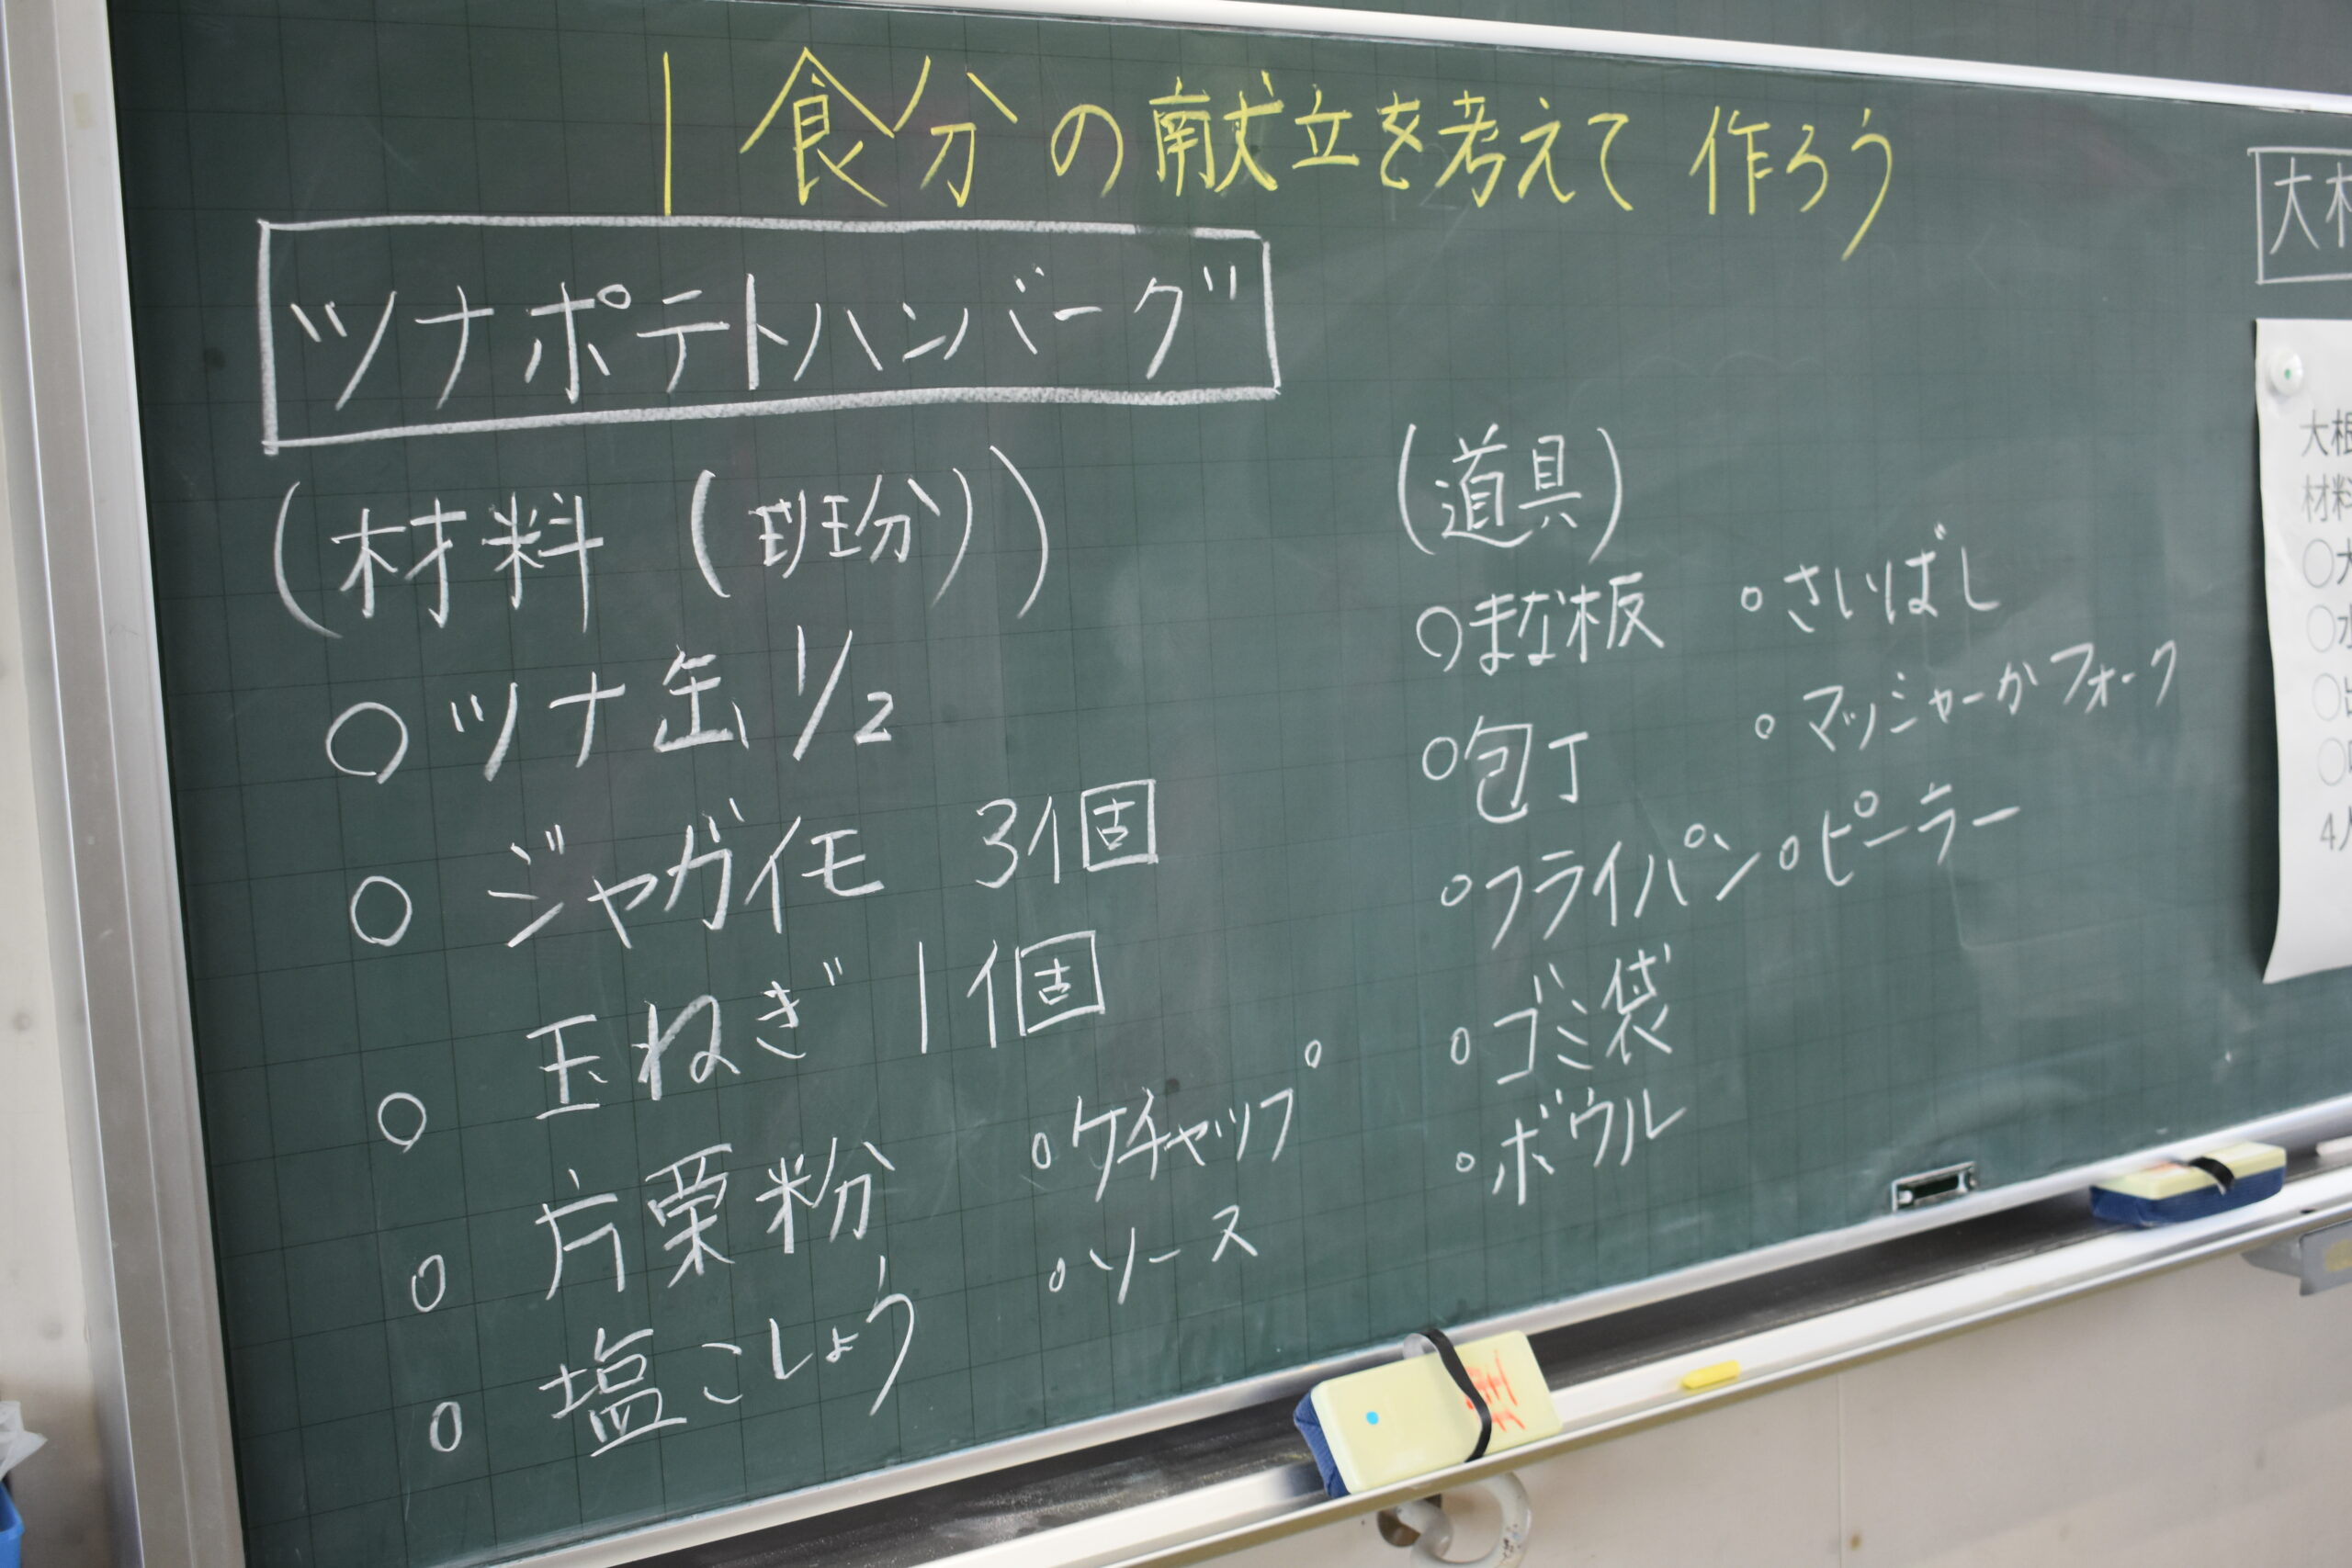 1食分の献立を考えて作ろう
ツナポテトハンバーグ
(材料(班分))
○ツナ缶 1/2
○ジャガイモ 3個
○玉ねぎ 1個
○片栗粉
○塩こしょう
○ケチャップ
○ソース
(道具)
○まな板
○包丁
○フライパン
○ゴミ袋
○ボウル
○さいばし
○マッシャーかフォーク
○ピーラー
大根
材料